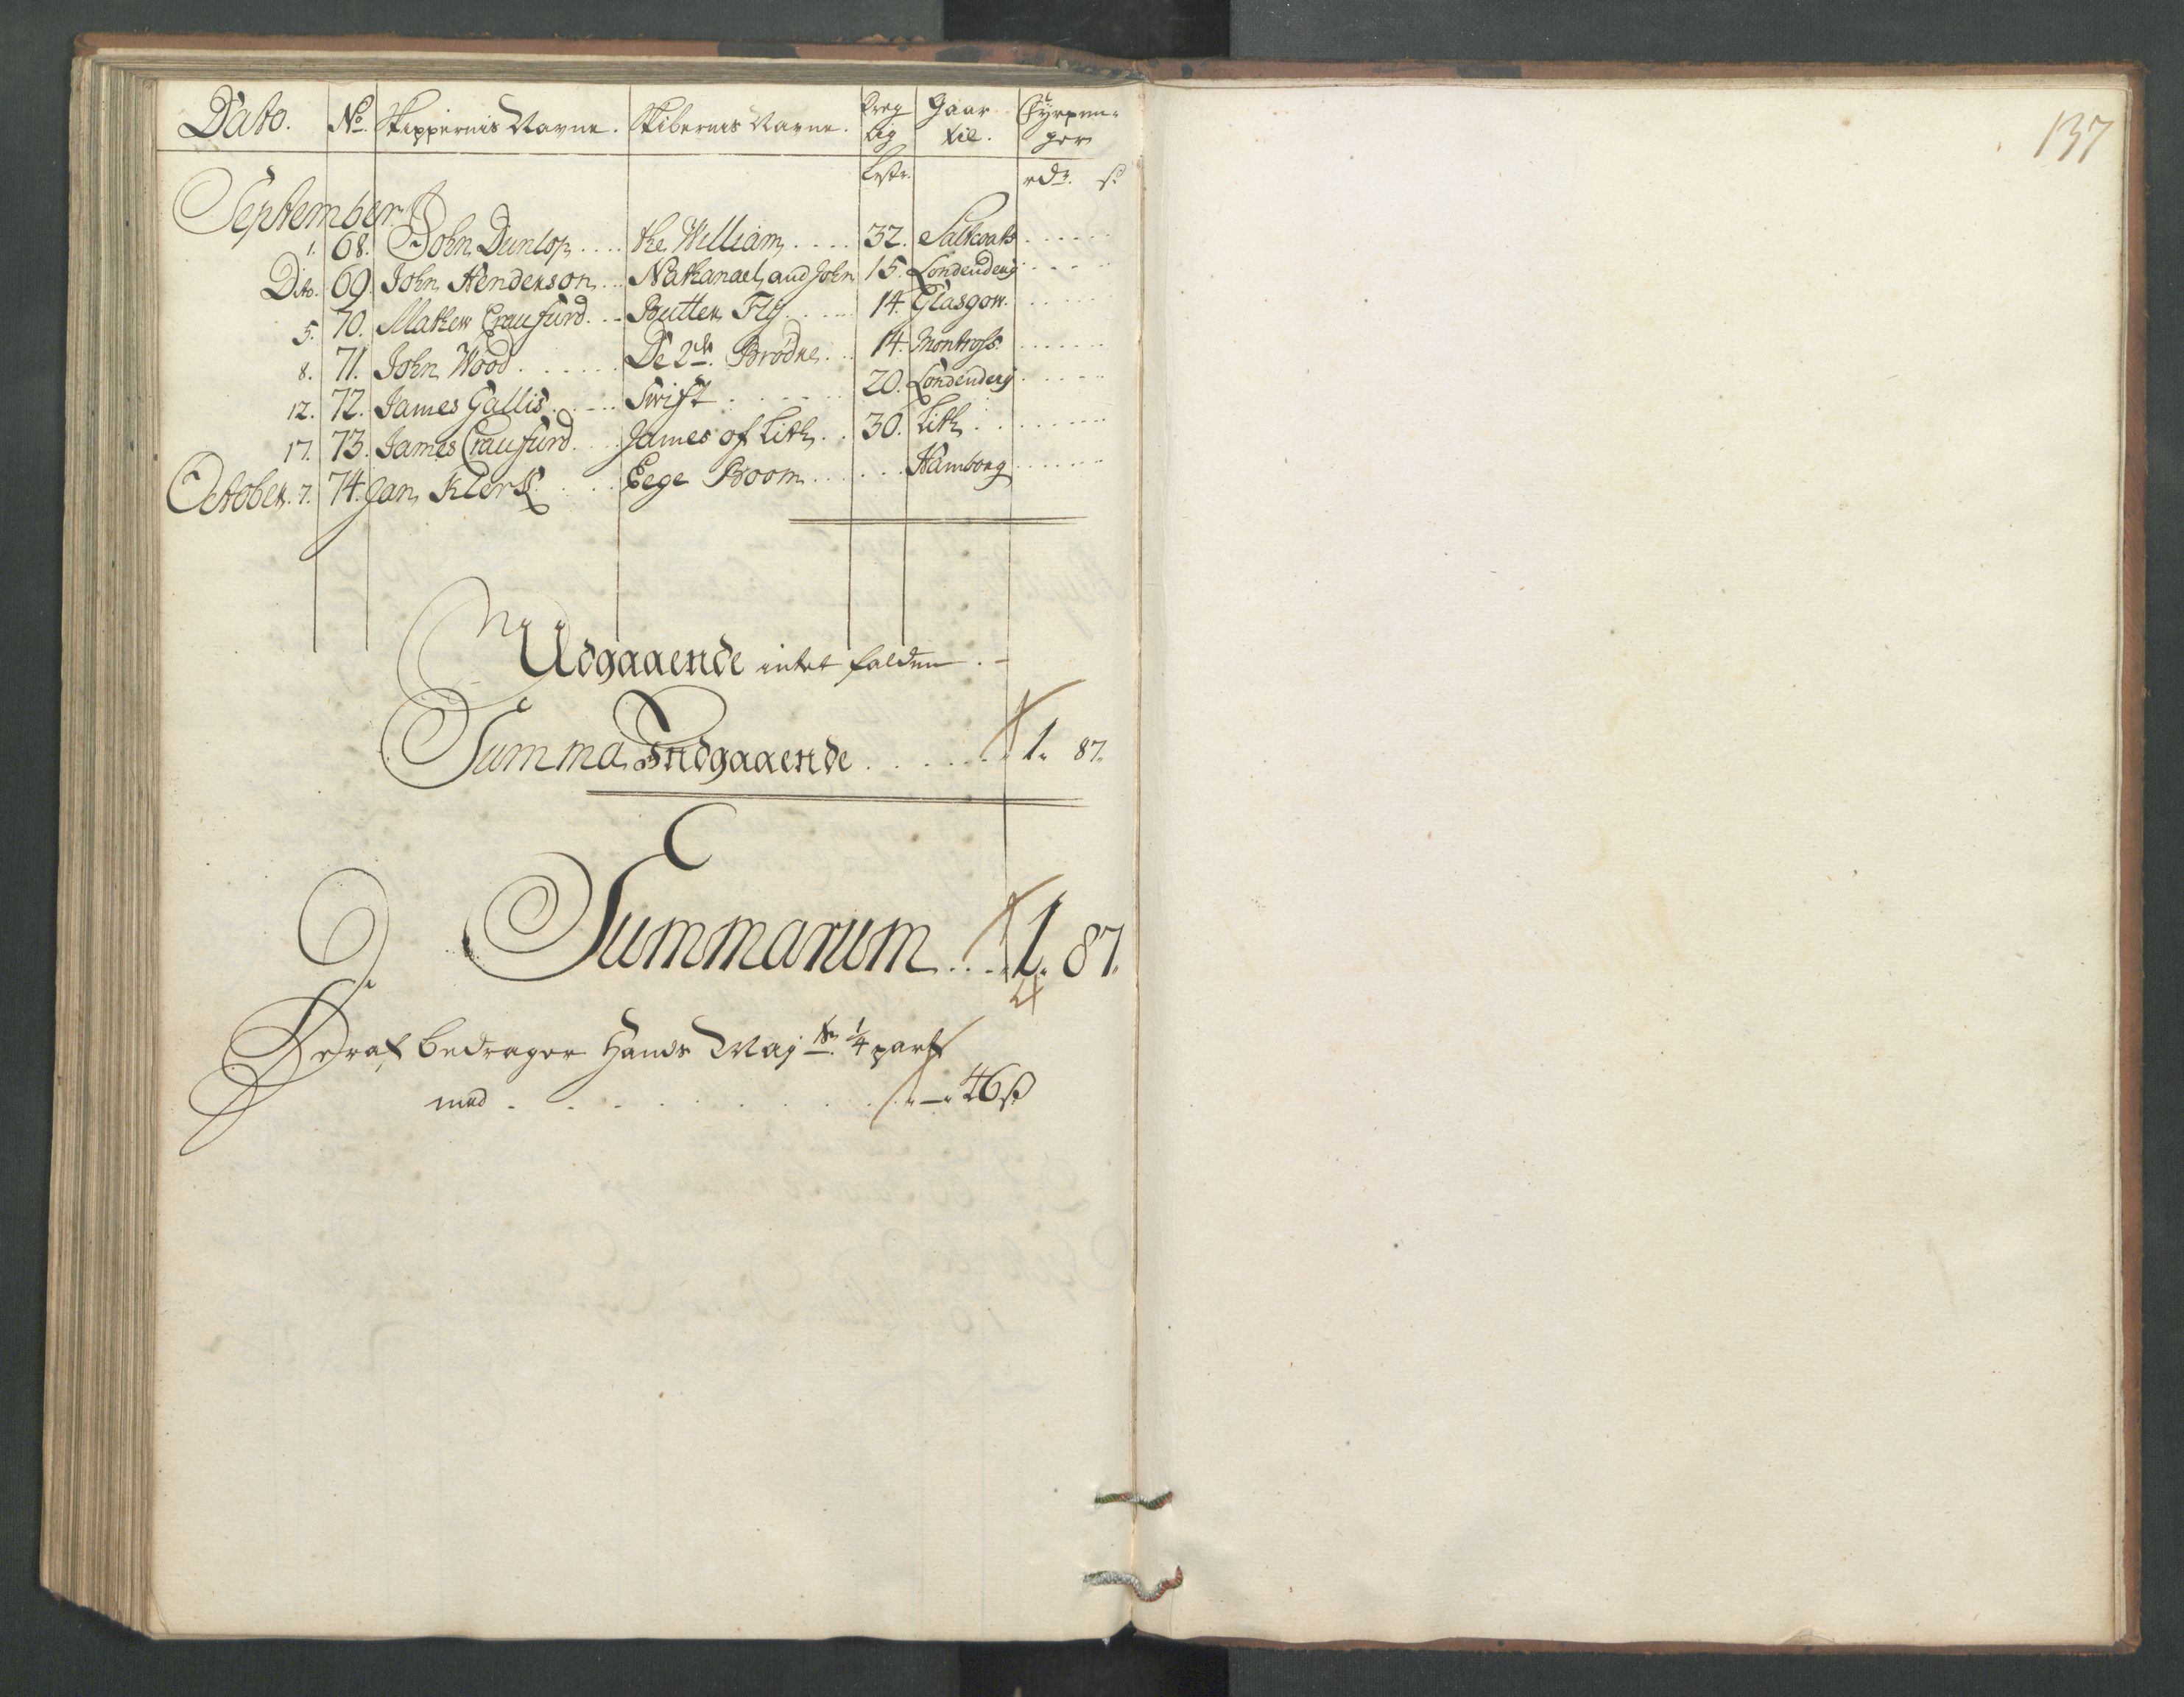 Dato. No. Skippernis Navne. Skibernis Navne. Dreg Gaar Fyrpen-
tig til. ger
Lest. rdr. s
September
1. 68. John Dunlop .... the William .... 32. Saltcoats ......
Dito. 69. John Henderson ... Nathanael and John 15. Londenderij .....
5. 70. Mathew Craufurd ... Butter Fly ..... 14. Glasgow ......
8. 71. John Wood ...... De 2de Brödre ... 14. Montross ......
12. 72. James Gallis ..... Swift ...... 20. Londenderij ......
17. 73. James Craufurd .... James of Lith ... 30. Lith ........
October. 7. 74. Jan Klerk .... Eege Boom ....... Hamborg ......
Udgaaende intet falden. -
Summa Indgaaende ....... 1. 87.
Summarum ..... 1. 87.
4
Deraf bedrager Hands Mayts 1/4 part
med ......... - 46 s
137